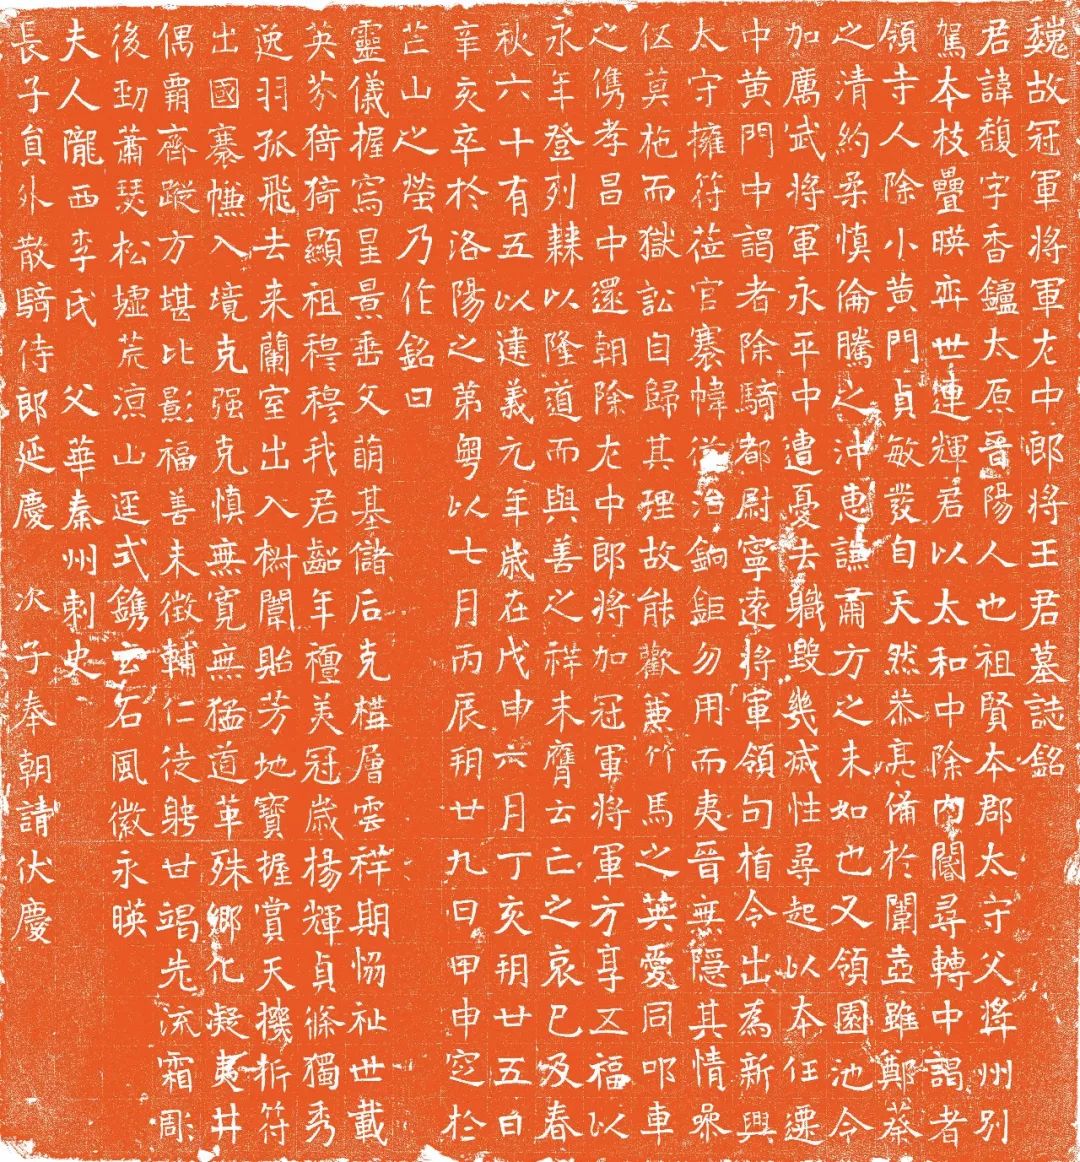 魏故冠軍将軍左中郎将王君墓誌銘
君諱馥字香鑪太原晋陽人也祖賢本郡太守父将州别
駕本枝疊暎弈世連輝君以太和中除内闇尋轉中謁者
領寺人除小黄門貞敏發自天然恭亮俻於闈壼雖鄭蔡
之清約柔慎倫騰之沖惠謙肅方之未如也又領園池令
加厲武将軍永平中遭憂去職毁幾滅性尋起以本任遷
中黄門中謁者除騎都尉寧遠将軍領句楯令出為新興
太守擁符莅官褰幃從治鉤鉅勿用而夷晉無隱其情喿
伍莫柂而獄訟自歸其理故能歡蒹竹馬之英愛同叩車
之儁孝昌中還朝除左中郎将加冠軍将軍方享五福以
永年登列棘以隆道而與善之祥未膺云亡之哀已及春
秋六十有五以建義元年歳在戊申六月丁亥朔廿五日
辛亥卒於洛陽之第粤以七月丙辰朔廿九日甲申窆於
芒山之塋乃作銘曰
靈儀握寫星景垂文 萌基儲后克構層雲祥期恊祉世載
英芬猗猗顯祖穆穆我君齠年檀美冠歳楊輝貞條獨秀
逸羽孤飛去来蘭室出入樹闈貽芳地寶握賞天機析符
出國褰幨入境克强克慎無寛無猛道革殊鄉化凝夷井
偶霸齊蹤方堪比影福善未徴輔仁徒聘甘竭先流霜彫
後勁蕭瑟松墟荒凉山逕式鐫云石風徽永暎
夫人隴西李氏 父華秦州刺史
長子員外散騎侍郎延慶 次子奉朝請伏慶